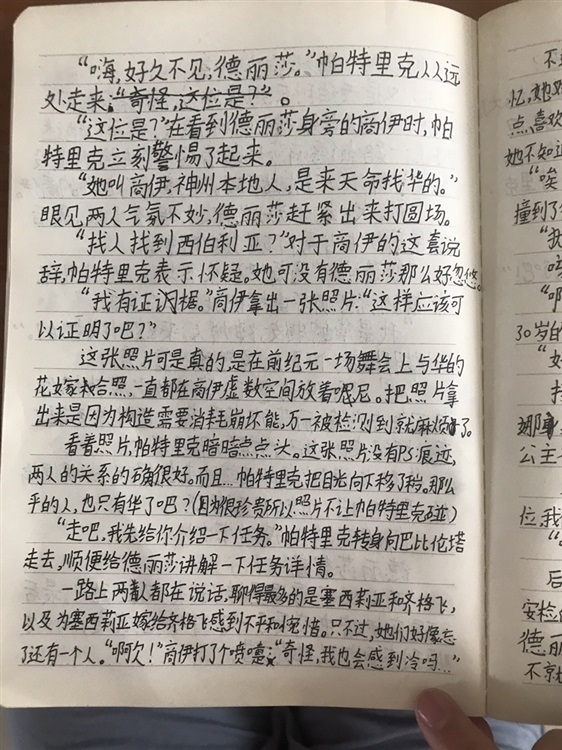 “嗨,好久不见,德丽莎。”帕特里克从远
处走来,“奇怪,这位是?”。
“这位是?”在看到德丽莎身旁的商伊时,帕
特里克立刻警惕了起来。
“她叫商伊,神州本地人,是来天命找华的。”
眼见两人气氛不妙,德丽莎赶紧出来打圆场。
“找人找到西伯利亚?”对于商伊的这套说
辞,帕特里克表示怀疑。她可没有德丽莎那么好忽悠。
“我有证据。”商伊拿出一张照片:“这样应该可
以证明了吧?”
这张照片可是真的,是在前纪元一场舞会上与华的
花嫁合照,一直都在商伊虚数空间放着呢。把照片拿
出来是因为构造需要消耗崩坏能,万一被检测到就麻烦了。
看着照片,帕特里克暗暗点点头。这张照片没有PS痕迹,
两人的关系的确很好。而且…帕特里克把目光向下移了移。那么
平的人,也只有华了吧?(因为很珍贵所以照片不让帕特里克碰)
“走吧,我先给你介绍一下任务。”帕特里克转身向巴比伦塔
走去,顺便给德丽莎讲解一下任务详情。
一路上两人都在说话,聊得最多的是塞西莉亚和齐格飞,
以及为塞西莉亚嫁给齐格飞感到不平和惋惜。只不过,她们好像忘
了还有一个人。“啊欠!”商伊打了个喷嚏:“奇怪,我也会感到冷吗…”
不
忆,她对
点喜欢
她不知道
“唉
撞到了
“我
“啊
30岁的
“好
公主
位我
后
安检的
德丽
不京